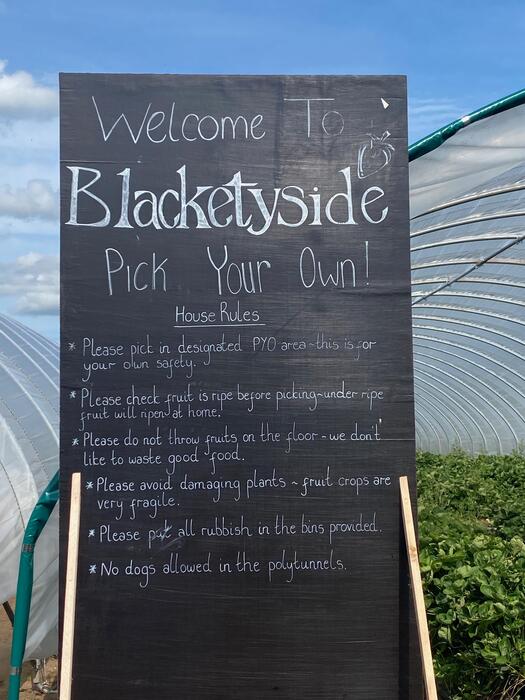 Welcome To
Blacketyside
Pick Your Own!
House Rules
* Please pick in designated PYO area ~ this is for
your own safety.
* Please check fruit is ripe before picking ~ under ripe
fruit will ripen at home.
* Please do not throw fruits on the floor - we don't
like to waste good food.
* Please avoid damaging plants ~ fruit crops are
very fragile.
* Please put all rubbish in the bins provided.
* No dogs allowed in the polytunnels.